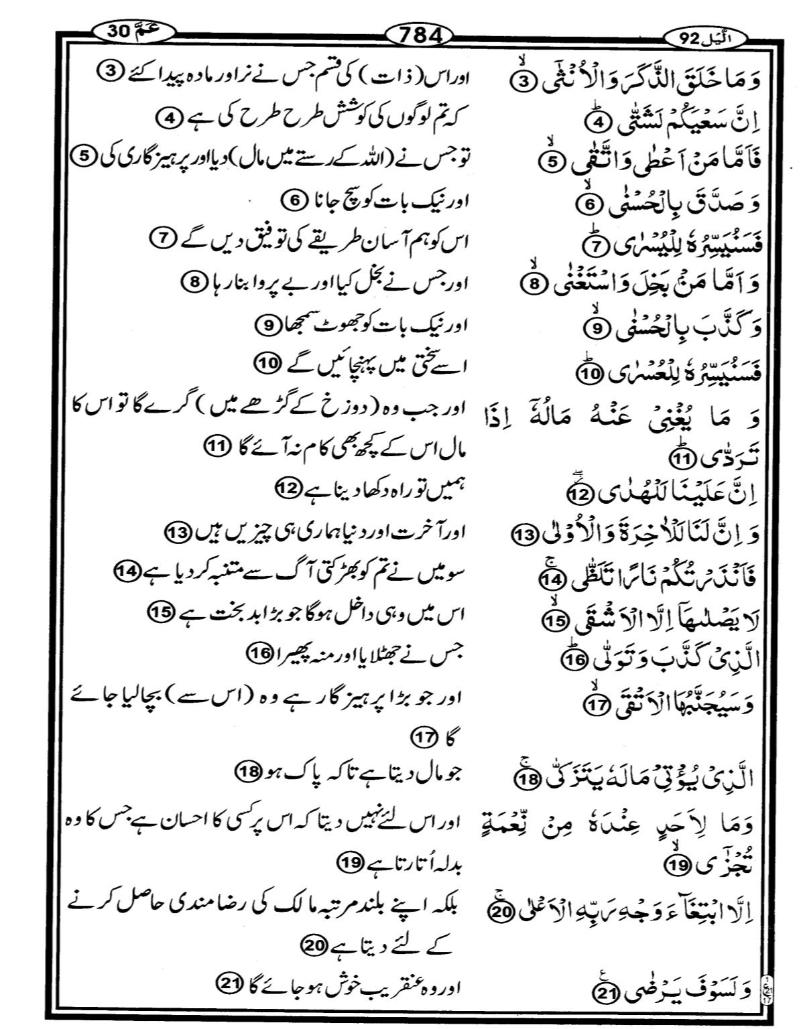 الَّیل 92 784 عَمَّ 30
وَمَا خَلَقَ الذَّكَرَ وَالْاُنْثٰۤى ۙ③ اور اس (ذات) کی قسم جس نے نر اور مادہ پیدا کئے ③
اِنَّ سَعْيَكُمْ لَشَتّٰى ؕ④ کہ تم لوگوں کی کوشش طرح طرح کی ہے ④
فَاَمَّا مَنْ اَعْطٰى وَاتَّقٰى ۙ⑤ تو جس نے (اللہ کے رستے میں مال) دیا اور پرہیز گاری کی ⑤
وَ صَدَّقَ بِالْحُسْنٰى ۙ⑥ اور نیک بات کو سچ جانا ⑥
فَسَنُيَسِّرُهٗ لِلْيُسْرٰى ؕ⑦ اس کو ہم آسان طریقے کی توفیق دیں گے ⑦
وَ اَمَّا مَنْۢ بَخِلَ وَاسْتَغْنٰى ۙ⑧ اور جس نے بخل کیا اور بے پروا بنا رہا ⑧
وَ كَذَّبَ بِالْحُسْنٰى ۙ⑨ اور نیک بات کو جھوٹ سمجھا ⑨
فَسَنُيَسِّرُهٗ لِلْعُسْرٰى ؕ⑩ اسے سختی میں پہنچائیں گے ⑩
وَ مَا يُغْنِىْ عَنْهُ مَالُهٗۤ اِذَا اور جب وہ (دوزخ کے گڑھے میں) گرے گا تو اس کا
تَرَدّٰى ؕ⑪ مال اس کے کچھ بھی کام نہ آئے گا ⑪
اِنَّ عَلَيْنَا لَلْهُدٰى ۖ⑫ ہمیں تو راہ دکھا دینا ہے ⑫
وَ اِنَّ لَنَا لَلْاٰخِرَةَ وَالْاُوْلٰى ⑬ اور آخرت اور دنیا ہماری ہی چیزیں ہیں ⑬
فَاَنْذَرْتُكُمْ نَارًا تَلَظّٰى ۚ⑭ سو میں نے تم کو بھڑکتی آگ سے متنبہ کر دیا ہے ⑭
لَا يَصْلٰىهَاۤ اِلَّا الْاَشْقَى ۙ⑮ اس میں وہی داخل ہوگا جو بڑا بدبخت ہے ⑮
الَّذِىْ كَذَّبَ وَتَوَلّٰى ؕ⑯ جس نے جھٹلایا اور منہ پھیرا ⑯
وَ سَيُجَنَّبُهَا الْاَتْقَى ۙ⑰ اور جو بڑا پرہیز گار ہے وہ (اس سے) بچا لیا جائے
گا ⑰
الَّذِىْ يُؤْتِىْ مَالَهٗ يَتَزَكّٰى ۚ⑱ جو مال دیتا ہے تاکہ پاک ہو ⑱
وَمَا لِاَحَدٍ عِنْدَهٗ مِنْ نِّعْمَةٍ اور اس لئے نہیں دیتا کہ اس پر کسی کا احسان ہے جس کا وہ
تُجْزٰۤى ۙ⑲ بدلہ اُتارتا ہے ⑲
اِلَّا ابْتِغَآءَ وَجْهِ رَبِّهِ الْاَعْلٰى ۚ⑳ بلکہ اپنے بلند مرتبہ مالک کی رضا مندی حاصل کرنے
کے لئے دیتا ہے ⑳
وَ لَسَوْفَ يَرْضٰى ㉑ اور وہ عنقریب خوش ہو جائے گا ㉑